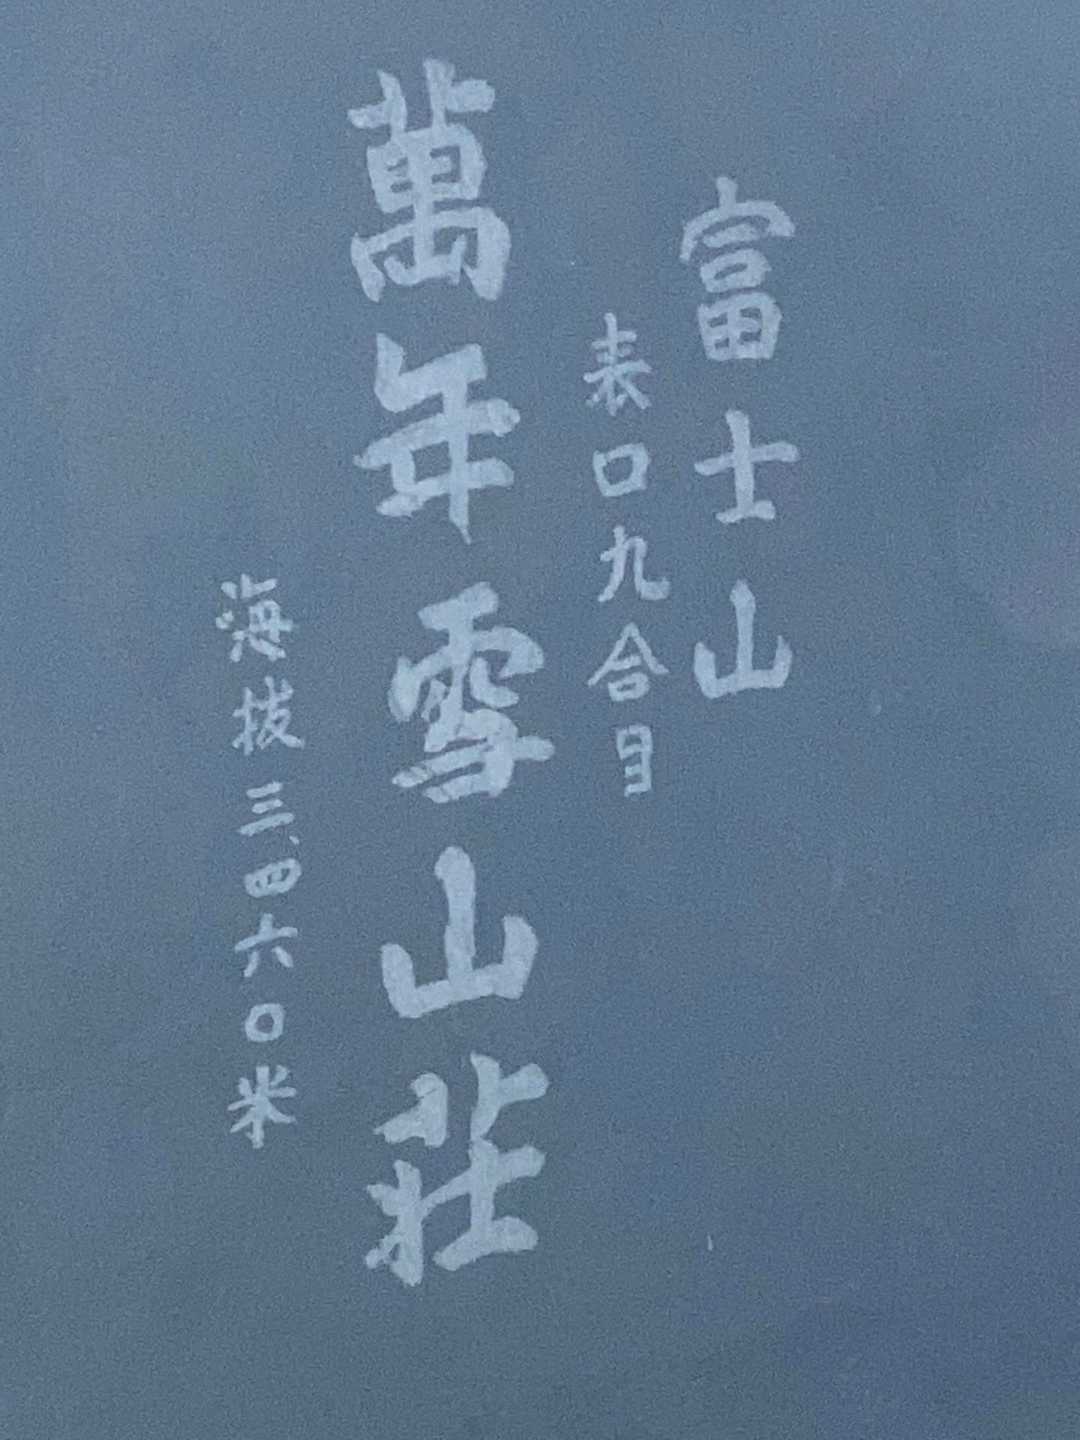 富士山
表口九合目
萬年雪山荘
海拔三、四六〇米